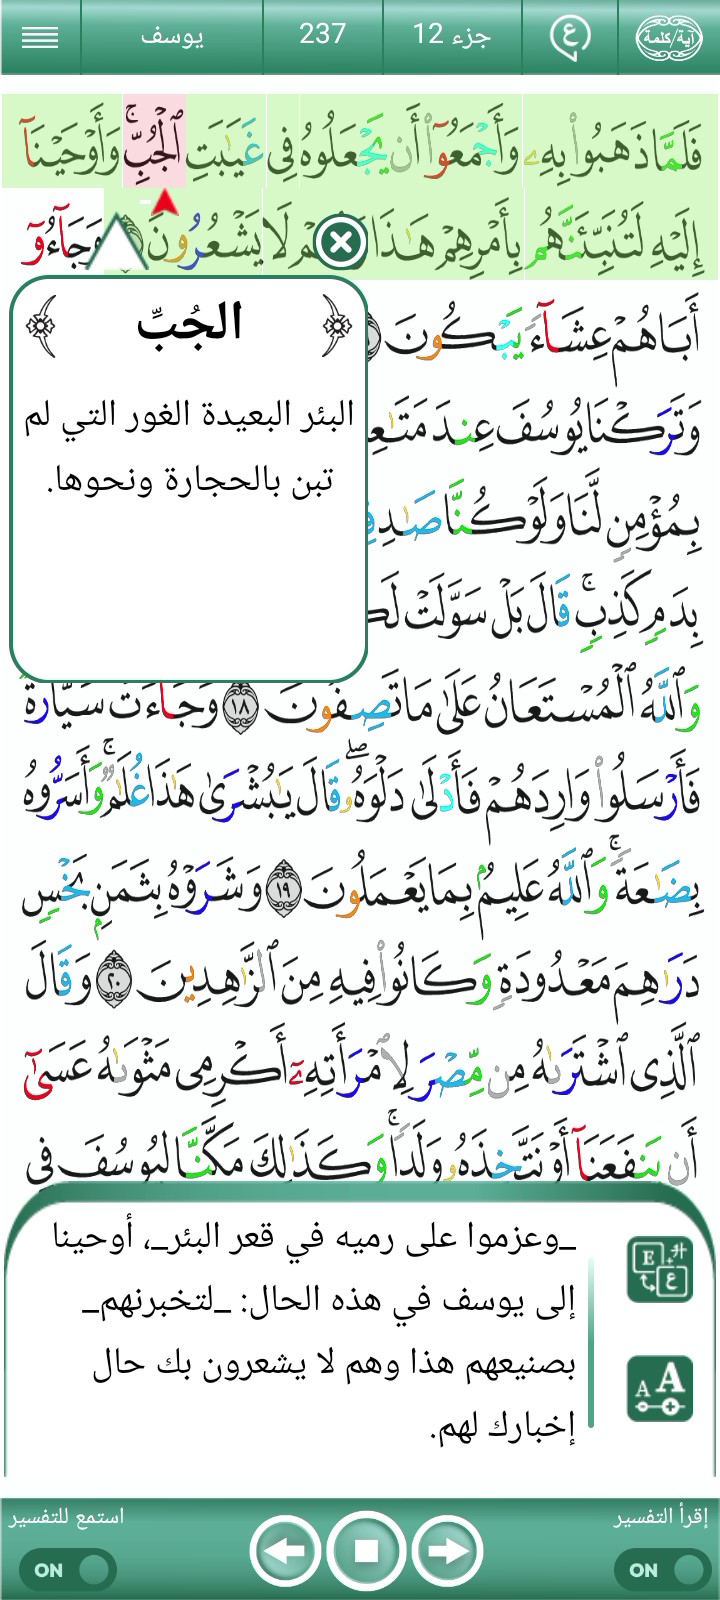 آية/كلمة ع جزء 12 237 يوسف
فَلَمَّا ذَهَبُوا۟ بِهِۦ وَأَجْمَعُوٓا۟ أَن يَجْعَلُوهُ فِى غَيَـٰبَتِ ٱلْجُبِّ ۚ وَأَوْحَيْنَآ
إِلَيْهِ لَتُنَبِّئَنَّهُم بِأَمْرِهِمْ هَـٰذَا لَا يَشْعُرُونَ وَجَآءُوٓ
أَبَاهُمْ عِشَآءً يَبْكُونَ
وَتَرَكْنَا يُوسُفَ عِندَ
بِمُؤْمِنٍ لَّنَا وَلَوْ كُنَّا
بِدَمٍ كَذِبٍ ۚ قَالَ بَلْ سَوَّلَتْ
الجُبِّ
البئر البعيدة الغور التي لم
تبن بالحجارة ونحوها.
وَٱللَّهُ ٱلْمُسْتَعَانُ عَلَىٰ مَا تَصِفُونَ ١٨ وَجَآءَتْ سَيَّارَةٌ
فَأَرْسَلُوا۟ وَارِدَهُمْ فَأَدْلَىٰ دَلْوَهُۥ ۖ قَالَ يَـٰبُشْرَىٰ هَـٰذَا غُلَـٰمٌ ۚ وَأَسَرُّوهُ
بِضَـٰعَةً ۚ وَٱللَّهُ عَلِيمٌۢ بِمَا يَعْمَلُونَ ١٩ وَشَرَوْهُ بِثَمَنٍۭ بَخْسٍ
دَرَٰهِمَ مَعْدُودَةٍ وَكَانُوا۟ فِيهِ مِنَ ٱلزَّٰهِدِينَ ٢٠ وَقَالَ
ٱلَّذِى ٱشْتَرَىٰهُ مِن مِّصْرَ لِٱمْرَأَتِهِۦٓ أَكْرِمِى مَثْوَىٰهُ عَسَىٰٓ
أَن يَنفَعَنَآ أَوْ نَتَّخِذَهُۥ وَلَدًا ۚ وَكَذَٰلِكَ مَكَّنَّا لِيُوسُفَ فِى
_وعزموا على رميه في قعر البئر_، أوحينا
إلى يوسف في هذه الحال: _لتخبرنهم_
بصنيعهم هذا وهم لا يشعرون بك حال
إخبارك لهم.
إقرأ التفسير استمع للتفسير
ON ON